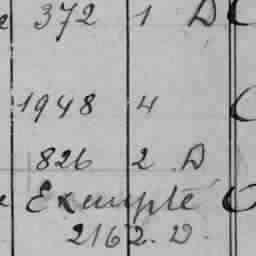 372 1 D
1948 4
826 2 D
Exempte
2162. D.